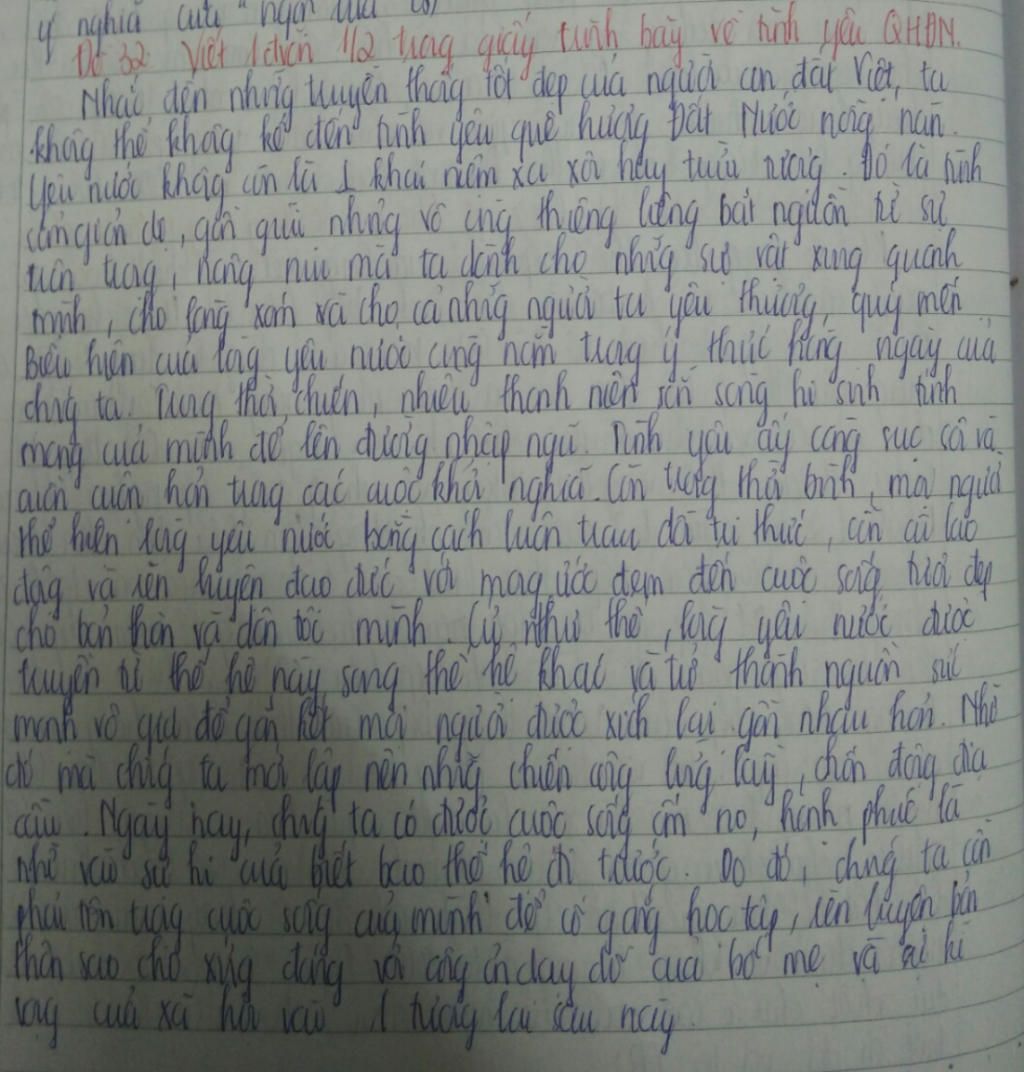 ý nghĩa của "ngọn lửa
Đề 32: Viết 1 đvăn 1/2 trang giấy trình bày về tình yêu QHĐN.
Nhắc đến những truyền thống tốt đẹp của người con đất Việt, ta
không thể không kể đến tình yêu quê hương Đất Nước nồng nàn.
Yêu nước không còn là 1 khái niệm xa xôi hay trừu tượng. Đó là tình
cảm giản dị, gần gũi nhưng vô cùng thiêng liêng bắt nguồn từ sự
trân trọng, nâng niu mà ta dành cho những sự vật xung quanh
mình, cho làng xóm và cho cả những người ta yêu thương, quý mến
Biểu hiện của lòng yêu nước cũng nằm trong ý thức hằng ngày của
chúng ta. Trong thời chiến, nhiều thanh niên sẵn sàng hi sinh tính
mạng của mình để lên đường nhập ngũ. Tình yêu ấy càng sục sôi và
cuồn cuộn hơn trong các cuộc khởi nghĩa. Còn trong thời bình, mọi người
thể hiện lòng yêu nước bằng cách luôn trau dồi tri thức, cần cù lao
động và rèn luyện đạo đức với mong ước đem đến cuộc sống tươi đẹp
cho bản thân và dân tộc mình. Cứ như thế, lòng yêu nước được
truyền từ thế hệ này sang thế hệ khác và trở thành nguồn sức
mạnh vô giá để gắn kết mọi người được xích lại gần nhau hơn. Nhờ
đó mà chúng ta mới lập nên những chiến công lừng lẫy, chấn động địa
cầu. Ngày nay, chúng ta có được cuộc sống ấm no, hạnh phúc là
nhờ vào sự hi của biết bao thế hệ đi trước. Do đó, chúng ta cần
phải tôn trọng cuộc sống của mình để cố gắng học tập, rèn luyện bản
thân sao cho xứng đáng với công ơn dạy dỗ của bố mẹ và sự kì
vọng của xã hội vào 1 tương lai sau này.